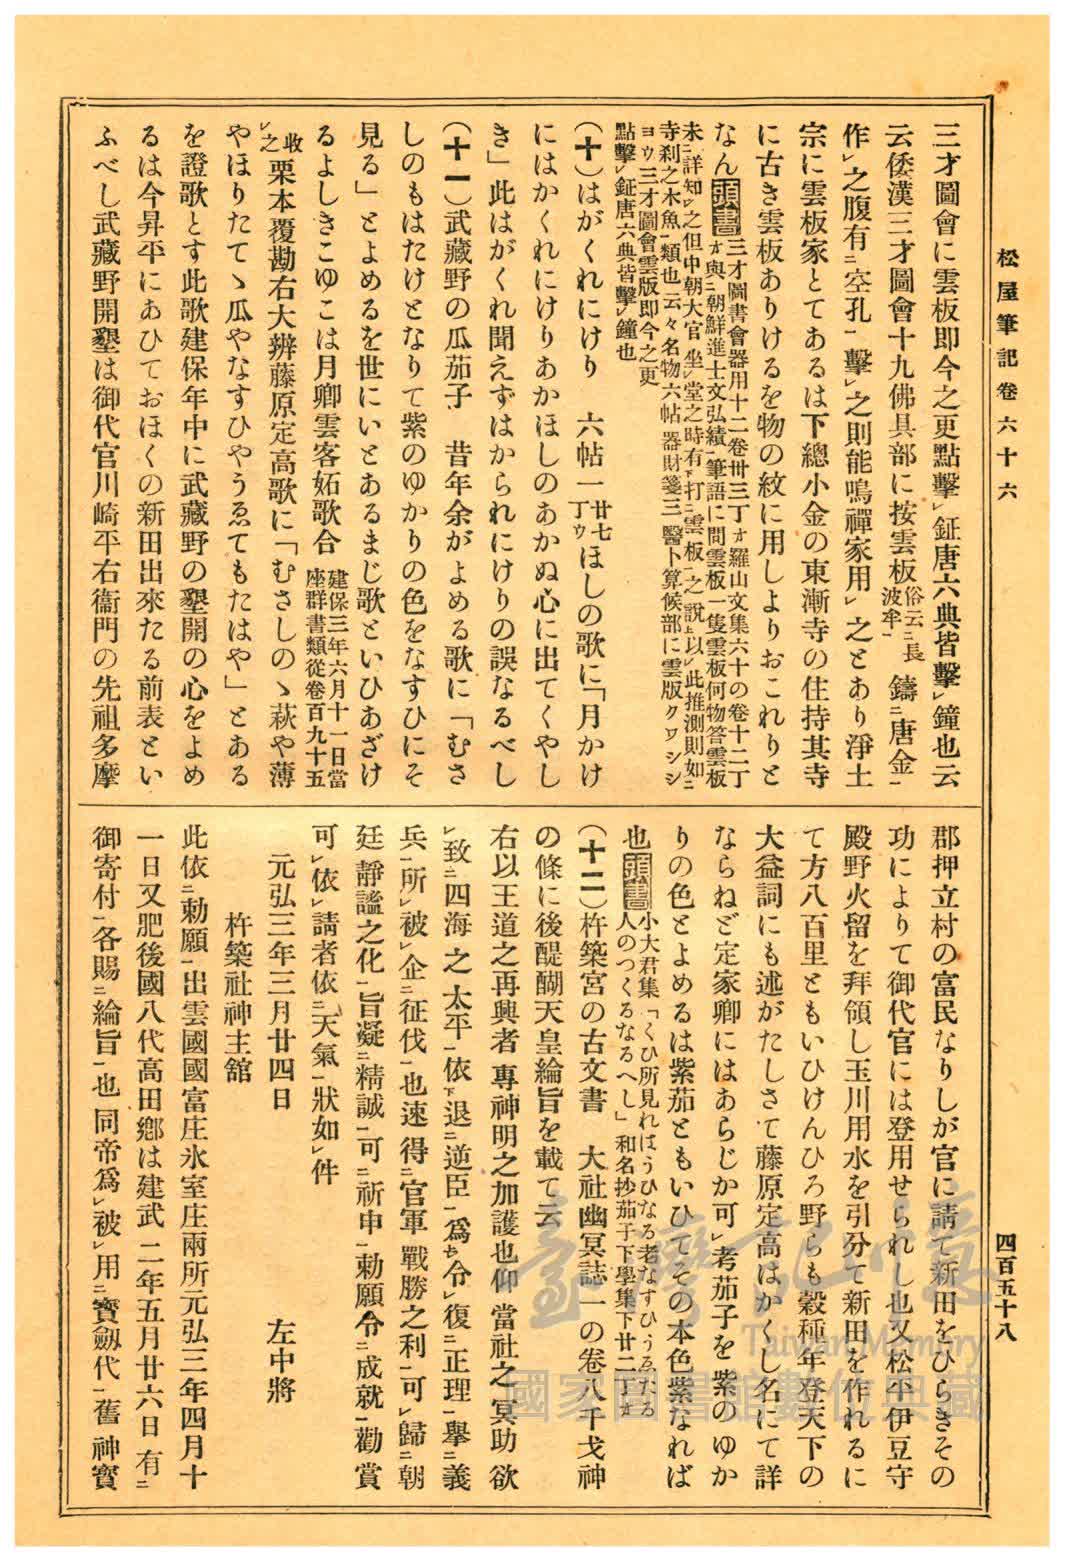 松屋筆記卷六十六
四百五十八
三才圖會に雲板即今之更點擊㆑鉦唐六典皆擊㆑鐘也云
云倭漢三才圖會十九佛具部に按雲板俗云㆓長波牟㆒鑄㆓唐金㆒
作㆑之腹有㆓空孔㆒擊㆑之則能鳴禪家用㆑之とあり淨土
宗に雲板家とてあるは下總小金の東漸寺の住持其寺
に古き雲板ありけるを物の紋に用しよりおこれりと
なん頭書三才圖書會器用十二卷卅三丁ォ羅山文集六十の卷十二丁
ォ與㆓朝鮮進士文弘績㆒筆語に問雲板一隻雲板何物答雲板
未㆓詳知㆒之但中朝大官坐㆑堂之時有㆘打㆓雲板㆒之說㆖以㆑此推測則如㆓
寺刹之木魚㆒類也云々名物六帖器財箋三醫卜算候部に雲版クワシシ
ヨウ三才圖會雲版即今之更
點擊㆑鉦唐六典皆擊㆑鐘也
(十)はがくれにけり　六帖一廿七丁ゥほしの歌に「月かけ
にはかくれにけりあかほしのあかぬ心に出てくやし
き」此はがくれ聞えずはかられにけりの誤なるべし
(十一)武藏野の瓜茄子　昔年余がよめる歌に「むさ
しのもはたけとなりて紫のゆかりの色をなすひにそ
見る」とよめるを世にいとあるまじ歌といひあざけ
るよしきこゆこは月卿雲客妬歌合建保三年六月十一日當座群書類從卷百九十五
收㆑之栗本覆勘右大辨藤原定高歌に「むさしのゝ萩や薄
やほりたてゝ瓜やなすひやうゑてもたはや」とある
を證歌とす此歌建保年中に武藏野の墾開の心をよめ
るは今昇平にあひておほくの新田出來たる前表とい
ふべし武藏野開墾は御代官川崎平右衞門の先祖多摩
郡押立村の富民なりしが官に請て新田をひらきその
功によりて御代官には登用せられし也又松平伊豆守
殿野火留を拜領し玉川用水を引分て新田を作れるに
て方八百里ともいひけんひろ野らも穀種年登天下の
大益詞にも述がたしさて藤原定高はかくし名にて詳
ならねど定家卿にはあらじか可㆑考茄子を紫のゆか
りの色とよめるは紫茄ともいひてその本色紫なれば
也頭書小大君集「くひ所見れはうひなる老なすひうゑたる
人のつくるなるへし」和名抄茄子下學集下廿二丁ォ
(十二)杵築宮の古文書　大社幽冥誌一の卷八千戈神
の條に後醍醐天皇綸旨を載て云
右以王道之再興者專神明之加護也仰當社之冥助欲
㆑致㆓四海之太平㆒依㆘退㆓逆臣㆒爲㆗令㆑復㆓正理㆒擧㆓義
兵㆒所㆑被㆑企㆓征伐㆒也速得㆓官軍戰勝之利㆒可㆑歸㆓朝
廷靜謐之化㆒旨凝㆓精誠㆒可㆓祈申㆒勅願令㆓成就㆒勸賞
可㆑依㆑請者依㆓天氣㆒狀如㆑件
元弘三年三月廿四日　　　左中將
杵築社神主舘
此依㆓勅願㆒出雲國國富庄氷室庄兩所元弘三年四月十
一日又肥後國八代高田鄉は建武二年五月廿六日有㆓
御寄付㆒各賜㆓綸旨㆒也同帝爲㆑被㆑用㆓寶劔代㆒舊神寶
臺灣記憶
Taiwan Memory
國家圖書館數位典藏